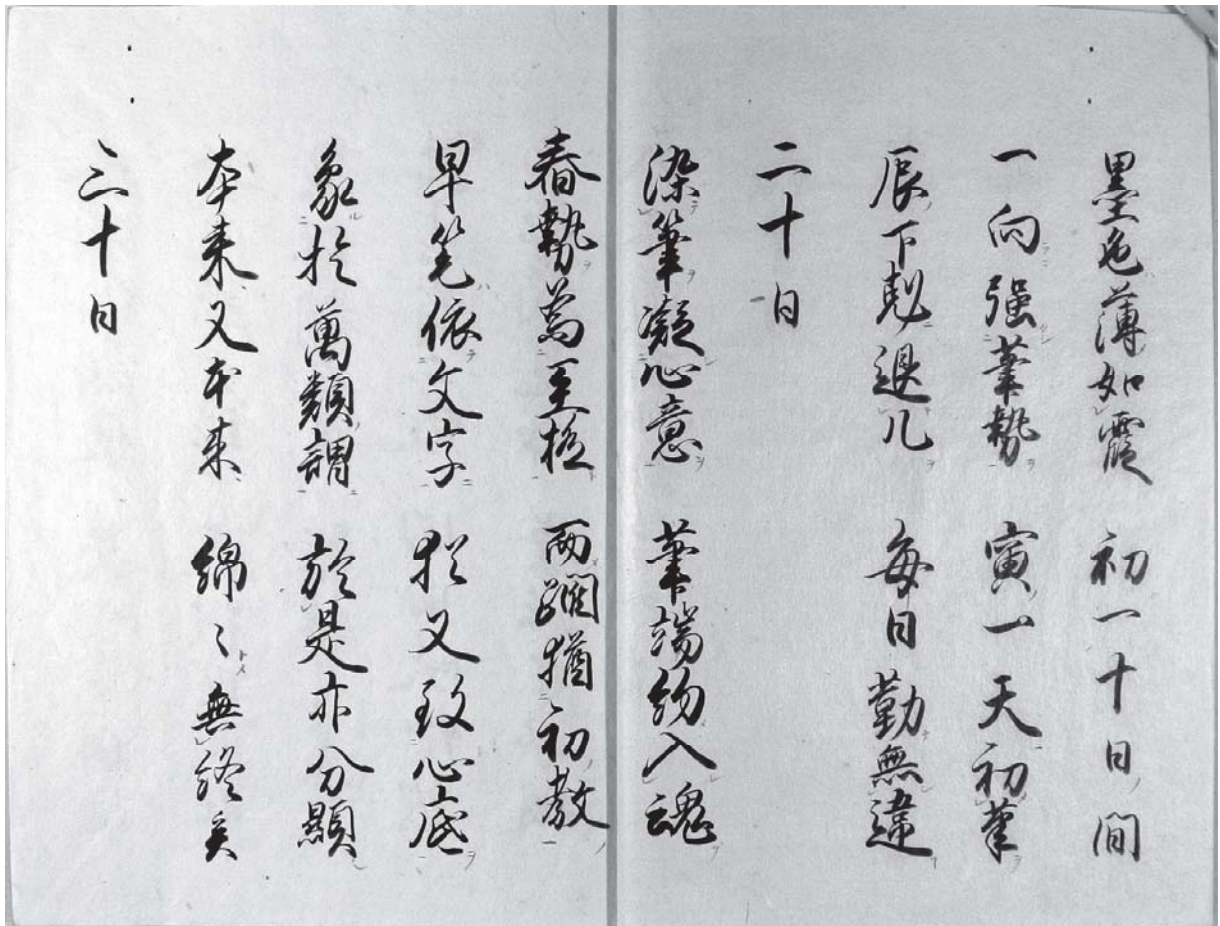 墨色薄如霞 初一十日間
一向強筆勢 寅一天初筆
辰下尅退几 毎日勤無違
二十日
染筆凝心意 筆端約入魂
春勢為至極 両躙猶初教
早筆依文字 猶又致心底
象於萬類謂 於是亦分顕
本来又本来 綿〻無終矣
三十日